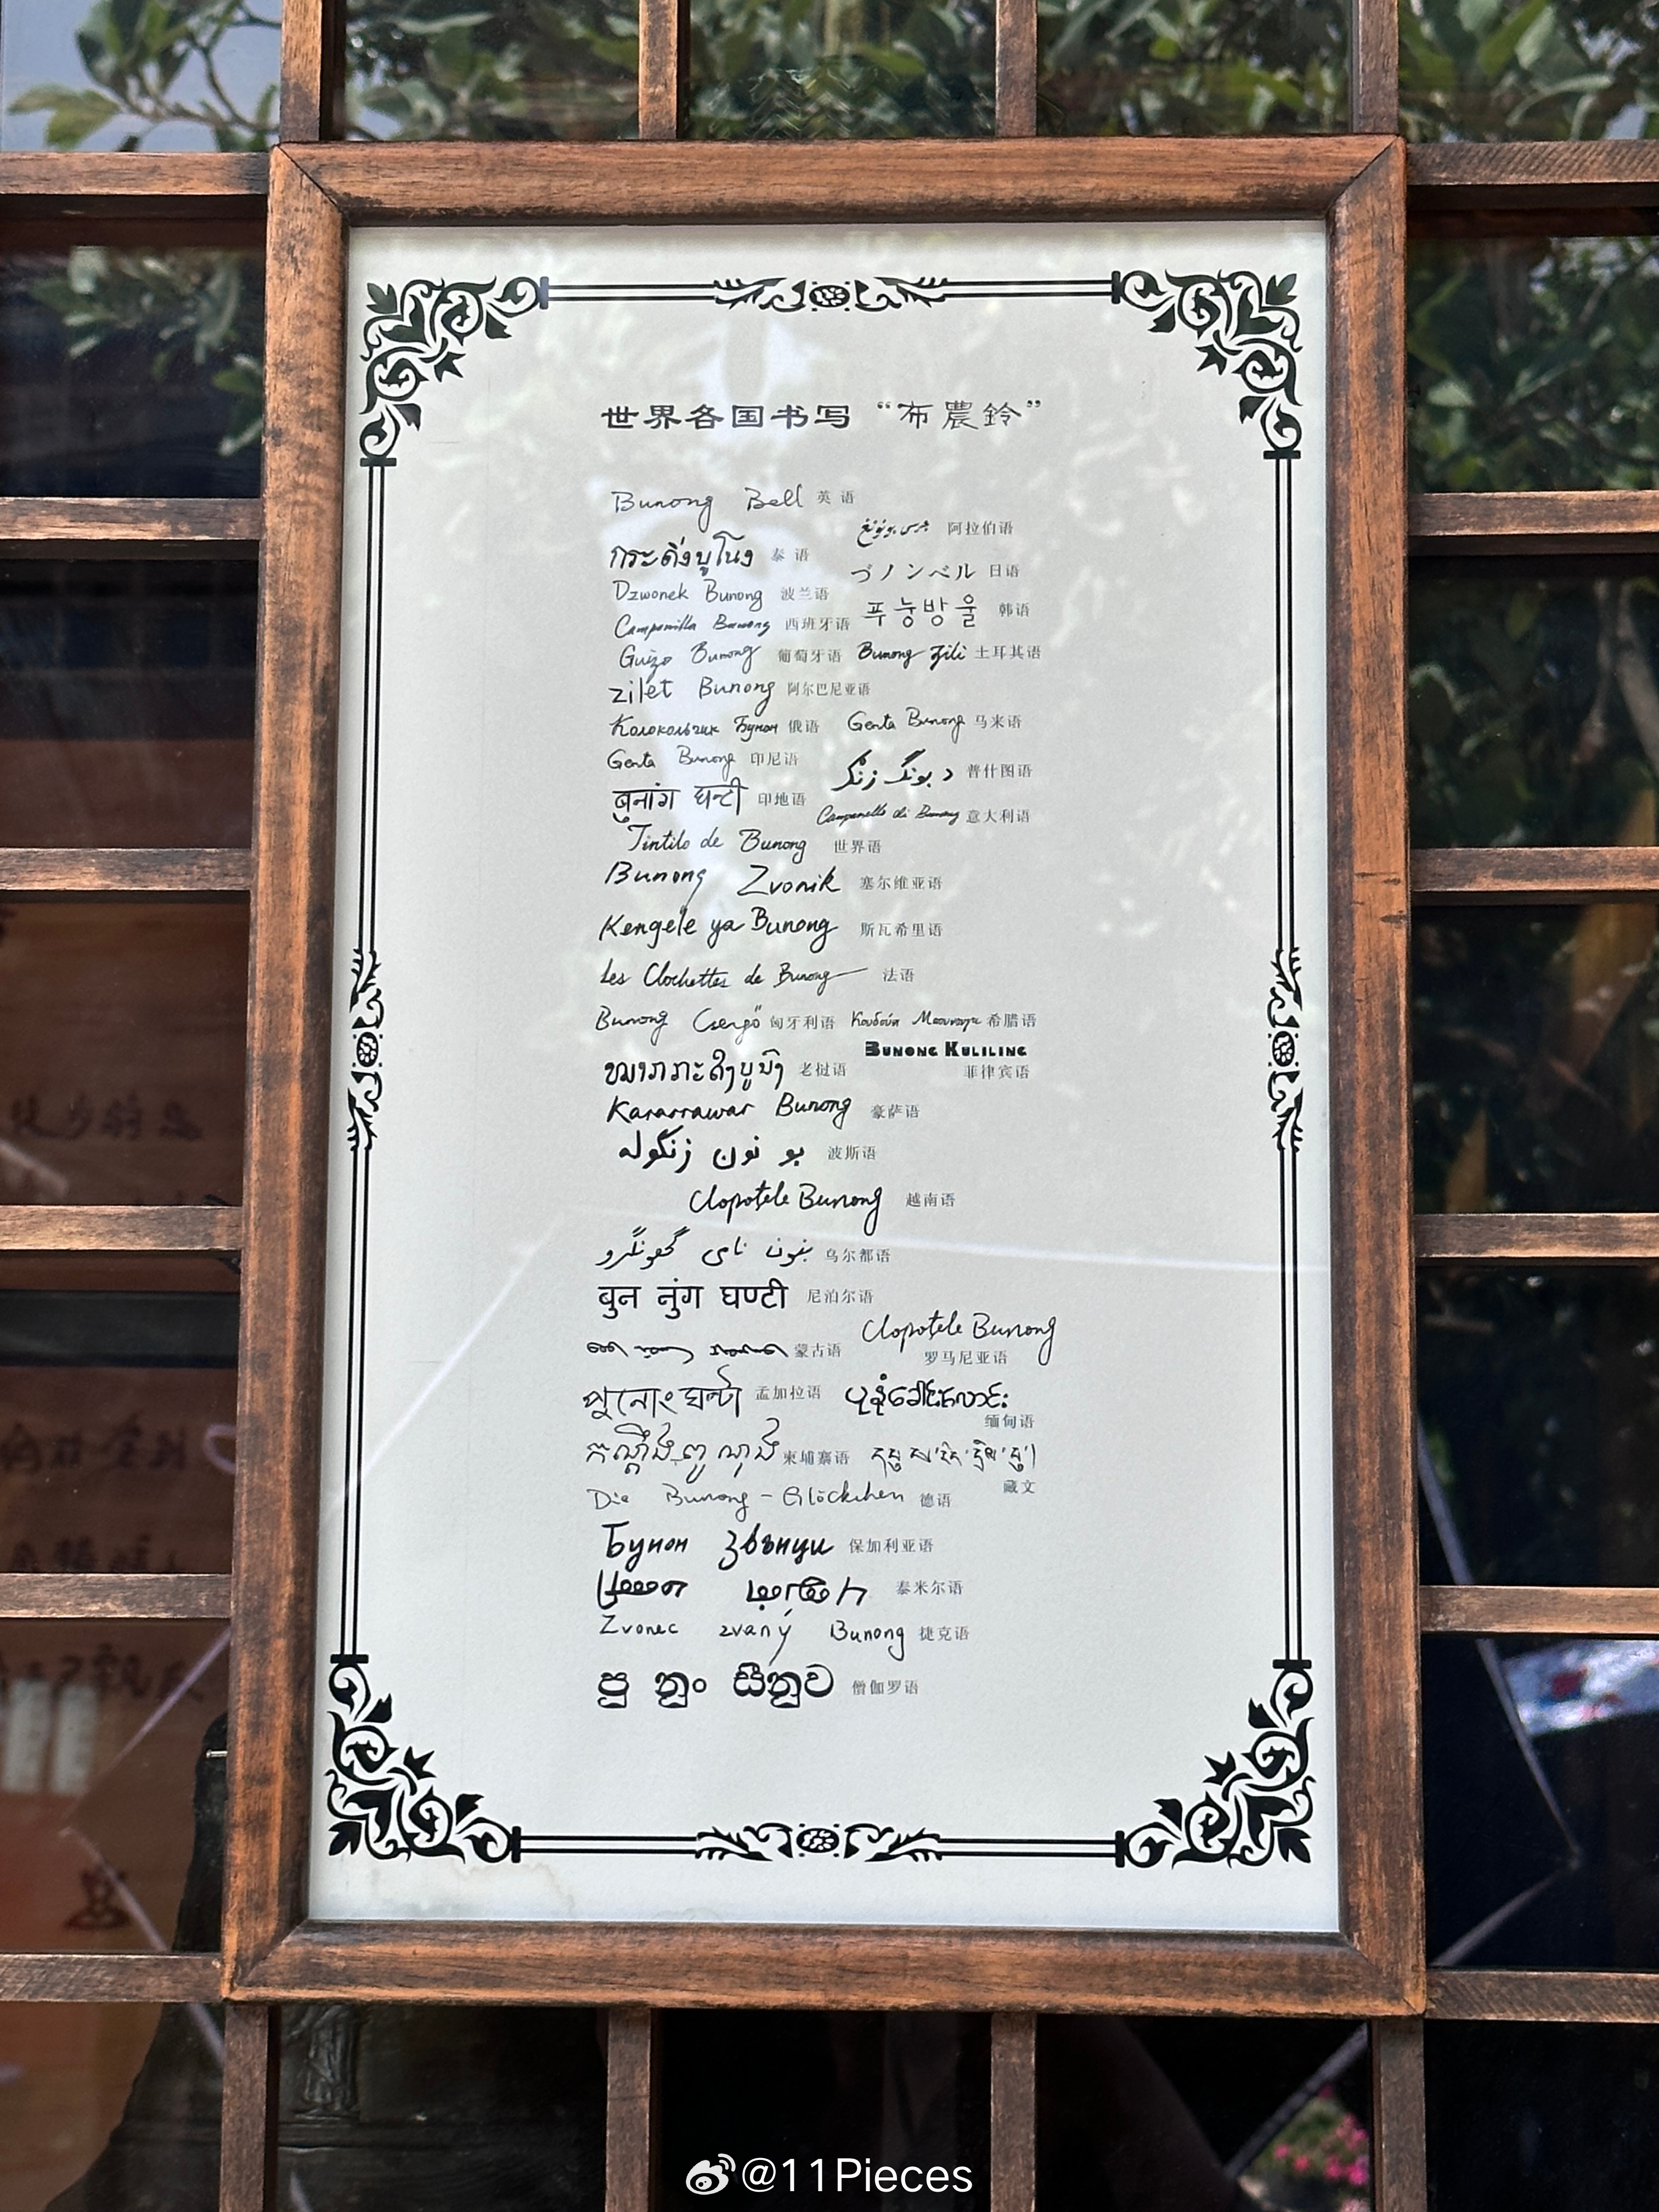 世界各国书写 “布農鈴”
Bunong Bell 英语
阿拉伯语
กระดิ่งบูโนง 泰语
ヴノンベル 日语
Dzwonek Bunong 波兰语
푸눙방울 韩语
Campanilla Bunong 西班牙语
Guizo Bunong 葡萄牙语 Bunong Zili 土耳其语
zilet Bunong 阿尔巴尼亚语
Колокольчик Бунон 俄语 Genta Bunong 马来语
Genta Bunong 印尼语
د بونگ زنګ 普什图语
बुनांग घन्टी 印地语
Campanello di Bunong 意大利语
Tintilo de Bunong 世界语
Bunong Zvonik 塞尔维亚语
Kengele ya Bunong 斯瓦希里语
Les Clochettes de Bunong 法语
Bunong Csengő 匈牙利语 Κουδούνι 希腊语
BUNONG KULILING
老挝语 菲律宾语
Kararrawar Bunong 豪萨语
بو نون زنگوله 波斯语
Clopotele Bunong 越南语
乌尔都语
बुन नुंग घण्टी 尼泊尔语
Clopotele Bunong
蒙古语 罗马尼亚语
孟加拉语
缅甸语
柬埔寨语
藏文
Die Bunong-Glöckchen 德语
Бунон Звънци 保加利亚语
泰米尔语
Zvonec zvaný Bunong 捷克语
僧伽罗语
@11Pieces